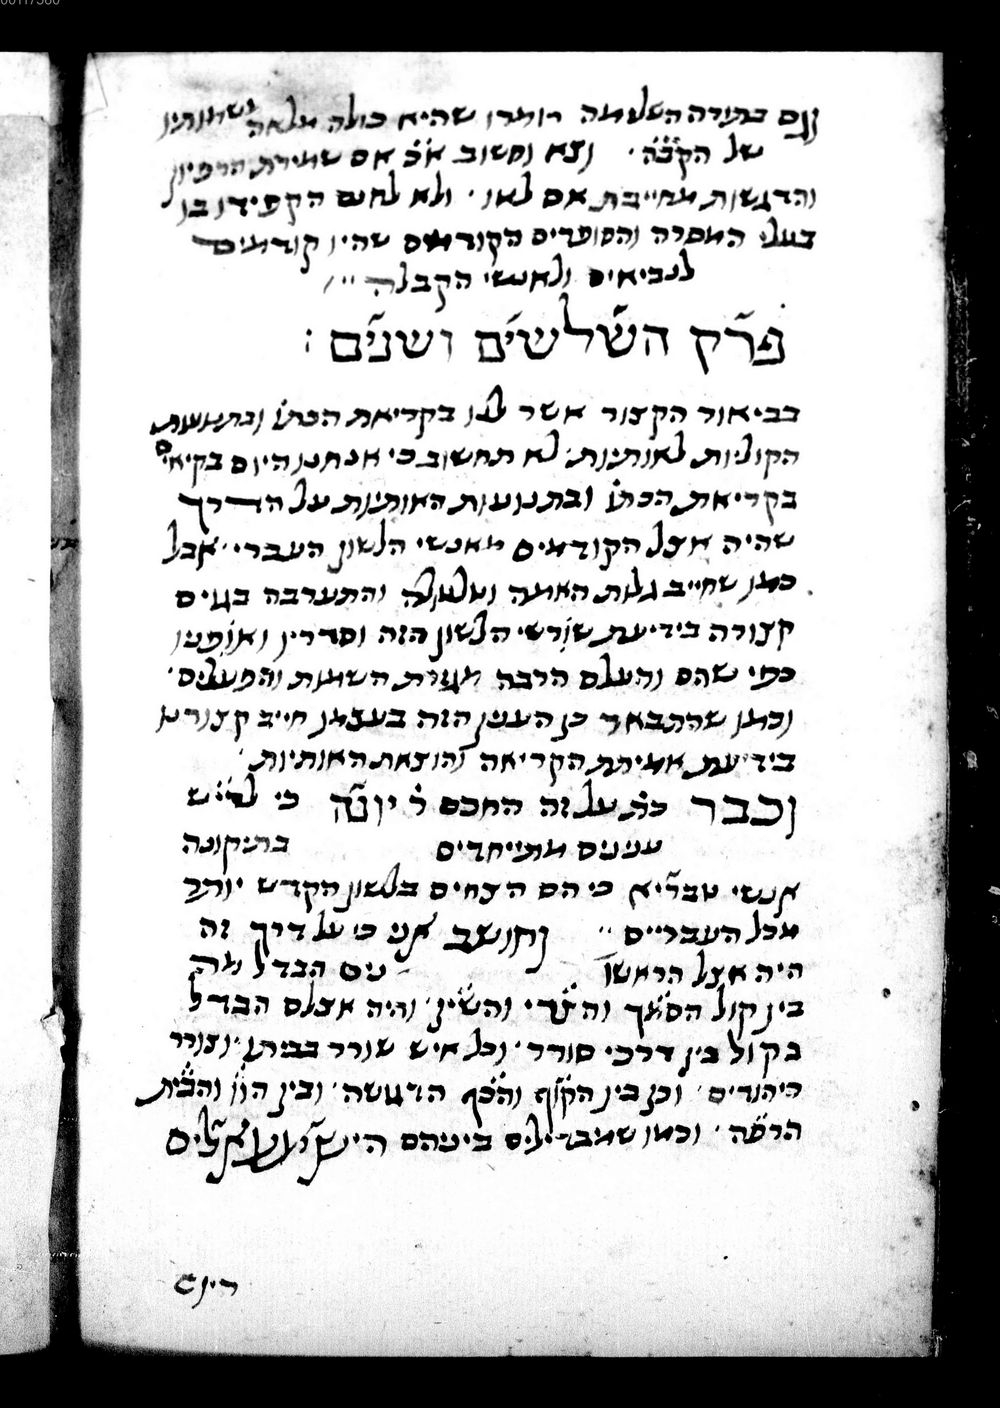 וגם בתורה השלמה רומזו שהיא כולה מלאה משמותיו
של הקב״ה · נצא וחשוב א״כ אם שמירת הרפיון
והדגשות מחייבת אם לאו · ולא לחנם הקפידו בו
בעלי המסרה והסופרים הקודמים שהיו קודמים
לנביאים ולאנשי הקבלה
פרק השלשים ושנים :
בביאור הקצור אשר לנו בקריאת הכתו׳ ובתנועות
הקוליות לאותיות · לא תחשוב כי אנחנו היום בקיאים
בקריאת הכתו׳ ובתנועות האותיות על הדרך
שהיה אצל הקודמים מאנשי הלשון העברי · אבל
כמו שחייב גלות האומה וטלטולה והתערבה בגוים
קצורה בידיעת שורשי הלשון הזה וסדריו ואופניו
כפי שהם והעלם הרבה מגזרת השמות והפעלים ·
וכמו שהתבאר כן הענין הזה בעצמו חייב קצורים
בידיעת אמיתת הקריאה והוצאת האותיות ·
וכבר כת׳ על זה החכם ר׳ יונה כי לריש
ענינים מתייחדים בתיקונה
אנשי טבריא כי הם הצחים בלשון הקדש יותר
מכל העבריים וחושב אני כי על דרך זה
היה אצל הראשו׳ גם הבדל מה
בין קול הסמך והצדי והשין · והיה אצלם הבדל
בקול בין דרכי סורר · וכל איש שורר בביתו · וצורר
היהודים · וכן בין הקוף והכף הדגושה · ובין הוו והבית
הרפה · וכמו שמבדילים ביניהם הישמעאלים